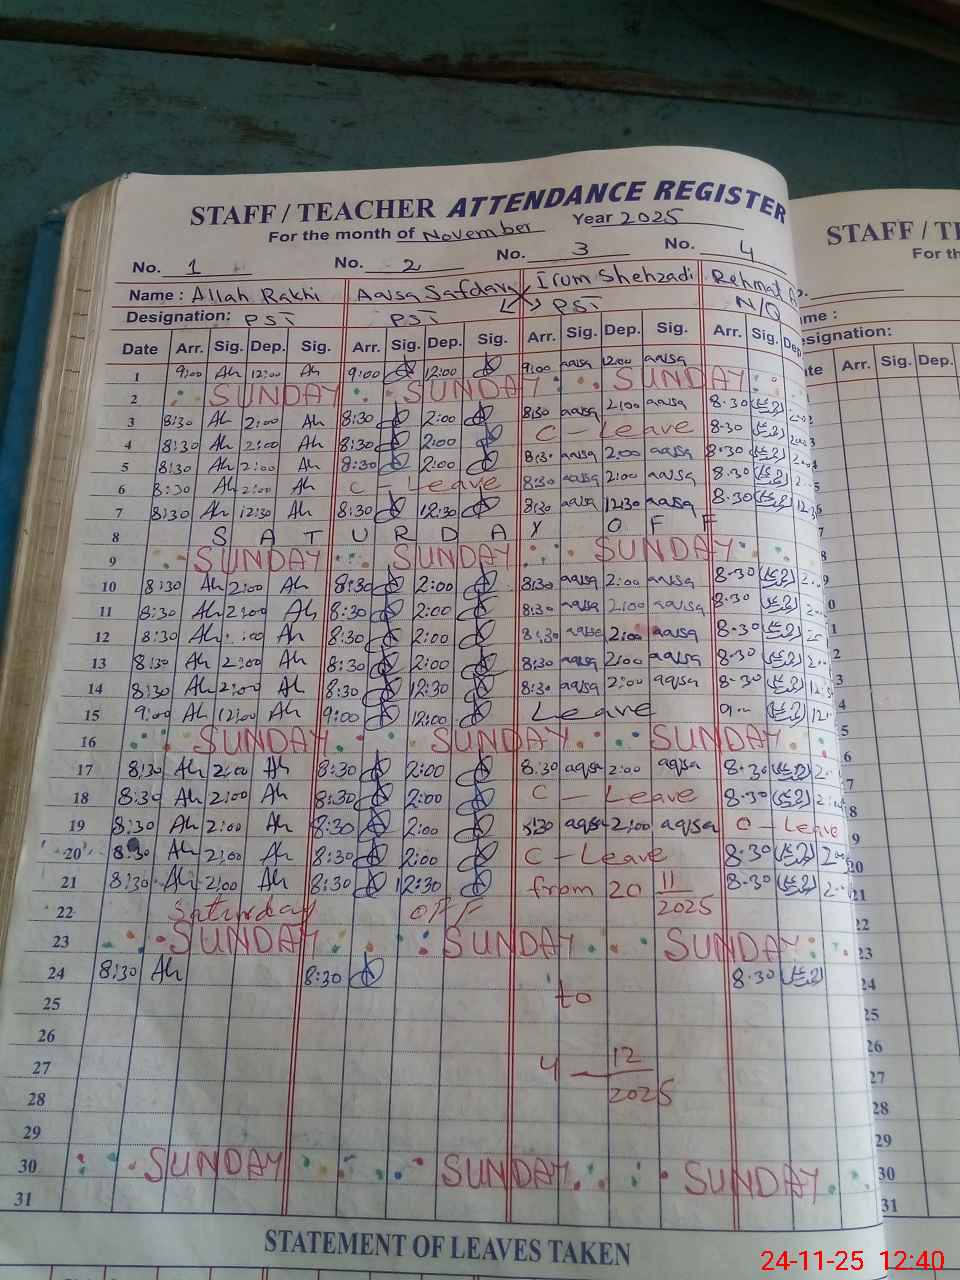 STAFF / TEACHER ATTENDANCE REGISTER
For the month of November Year 2025
No. 1 No. 2 No. 3 No. 4
Name : Allah Rakhi Irum Shehzadi Rehmat
Designation: PST PST PST N/Q
Date Arr. Sig. Dep. Sig. Arr. Sig. Dep. Sig. Arr. Sig. Dep. Sig. Arr. Sig. Dep.
1 9:00 Ah 12:00 Ah 9:00 12:00 9:00 aqsa 12:00 aqsa
2 SUNDAY SUNDAY SUNDAY
3 8:30 Ah 2:00 Ah 8:30 2:00 8:30 aqsa 2:00 aqsa 8.30
4 8:30 Ah 2:00 Ah 8:30 2:00 C - Leave 8.30
5 8:30 Ah 2:00 Ah 8:30 2:00 8:30 aqsa 2:00 aqsa 8.30
6 8:30 Ah 2:00 Ah C - Leave 8:30 aqsa 2:00 aqsa 8.30
7 8:30 Ah 12:30 Ah 8:30 12:30 8:30 aqsa 12:30 aqsa 8.30
8 S A T U R D A Y O F F
9 SUNDAY SUNDAY SUNDAY
10 8:30 Ah 2:00 Ah 8:30 2:00 8:30 aqsa 2:00 aqsa 8.30
11 8:30 Ah 2:00 Ah 8:30 2:00 8:30 aqsa 2:00 aqsa 8.30
12 8:30 Ah :00 Ah 8:30 2:00 8:30 aqsa 2:00 aqsa 8.30
13 8:30 Ah 2:00 Ah 8:30 2:00 8:30 aqsa 2:00 aqsa 8.30
14 8:30 Ah 2:00 Ah 8:30 12:30 8:30 aqsa 2:00 aqsa 8.30
15 9:00 Ah 12:00 Ah 9:00 12:00 Leave
16 SUNDAY SUNDAY SUNDAY
17 8:30 Ah 2:00 Ah 8:30 2:00 8:30 aqsa 2:00 aqsa 8.30
18 8:30 Ah 2:00 Ah 8:30 2:00 C - Leave 8.30
19 8:30 Ah 2:00 Ah 8:30 2:00 8:30 aqsa 2:00 aqsa C - Leave
20 8:30 Ah 2:00 Ah 8:30 2:00 C - Leave 8.30
21 8:30 Ah 2:00 Ah 8:30 12:30 from 20 11/2025 8.30
22 Saturday OFF
23 SUNDAY SUNDAY SUNDAY
24 8:30 Ah 8:30 8.30
25 to
26
27 4 - 12/2025
28
29
30 SUNDAY SUNDAY SUNDAY
31
STATEMENT OF LEAVES TAKEN
STAFF / TE
For th
Arr. Sig. Dep.
24-11-25 12:40